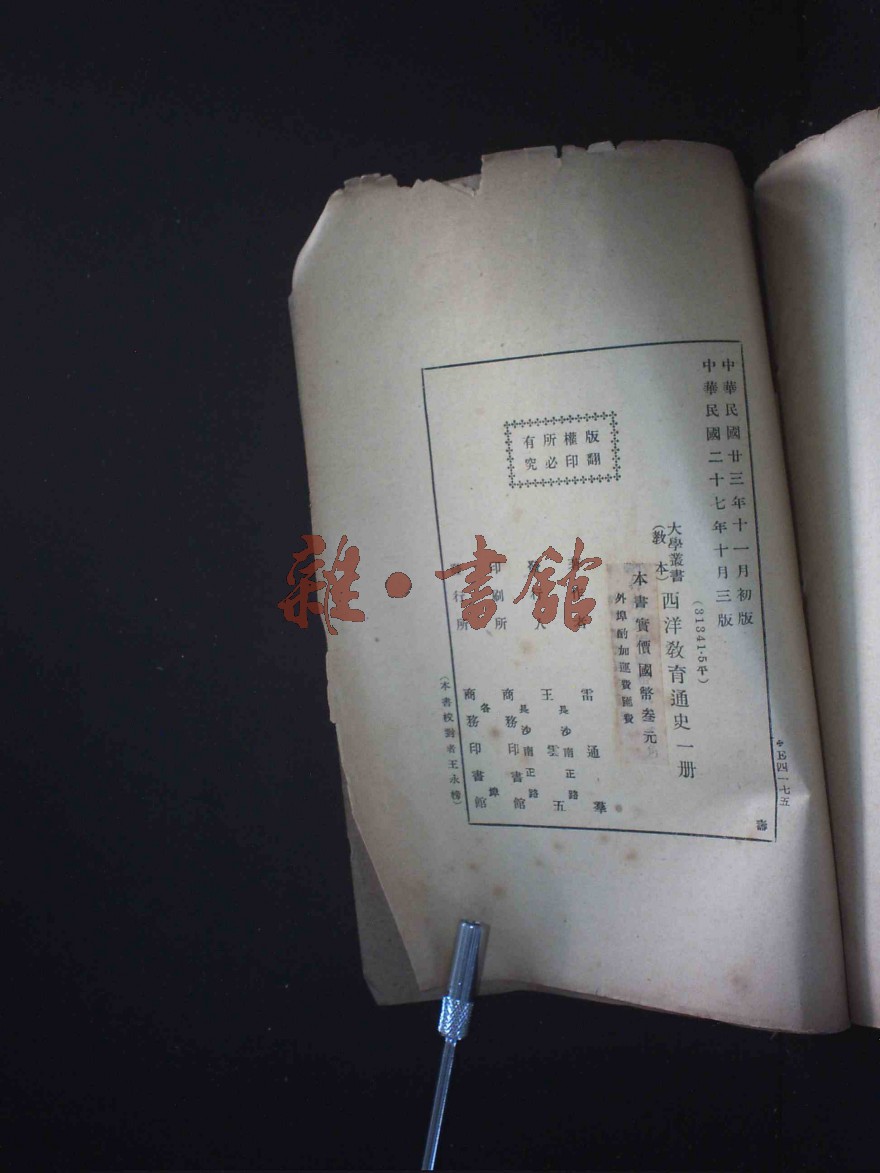 中華民國廿三年十一月初版
中華民國二十七年十月三版
(31341·5平)
大學叢書
(教本)
西洋教育通史一册
本書實價國幣叁元
外埠酌加運費匯費
版權所有
翻印必究
雷通羣
發行人
王雲五
長沙南正路
印刷所
商務印書館
長沙南正路
發行所
商務印書館
各埠
(本書校對者王永榜)
四一七五
壽
雜·書館